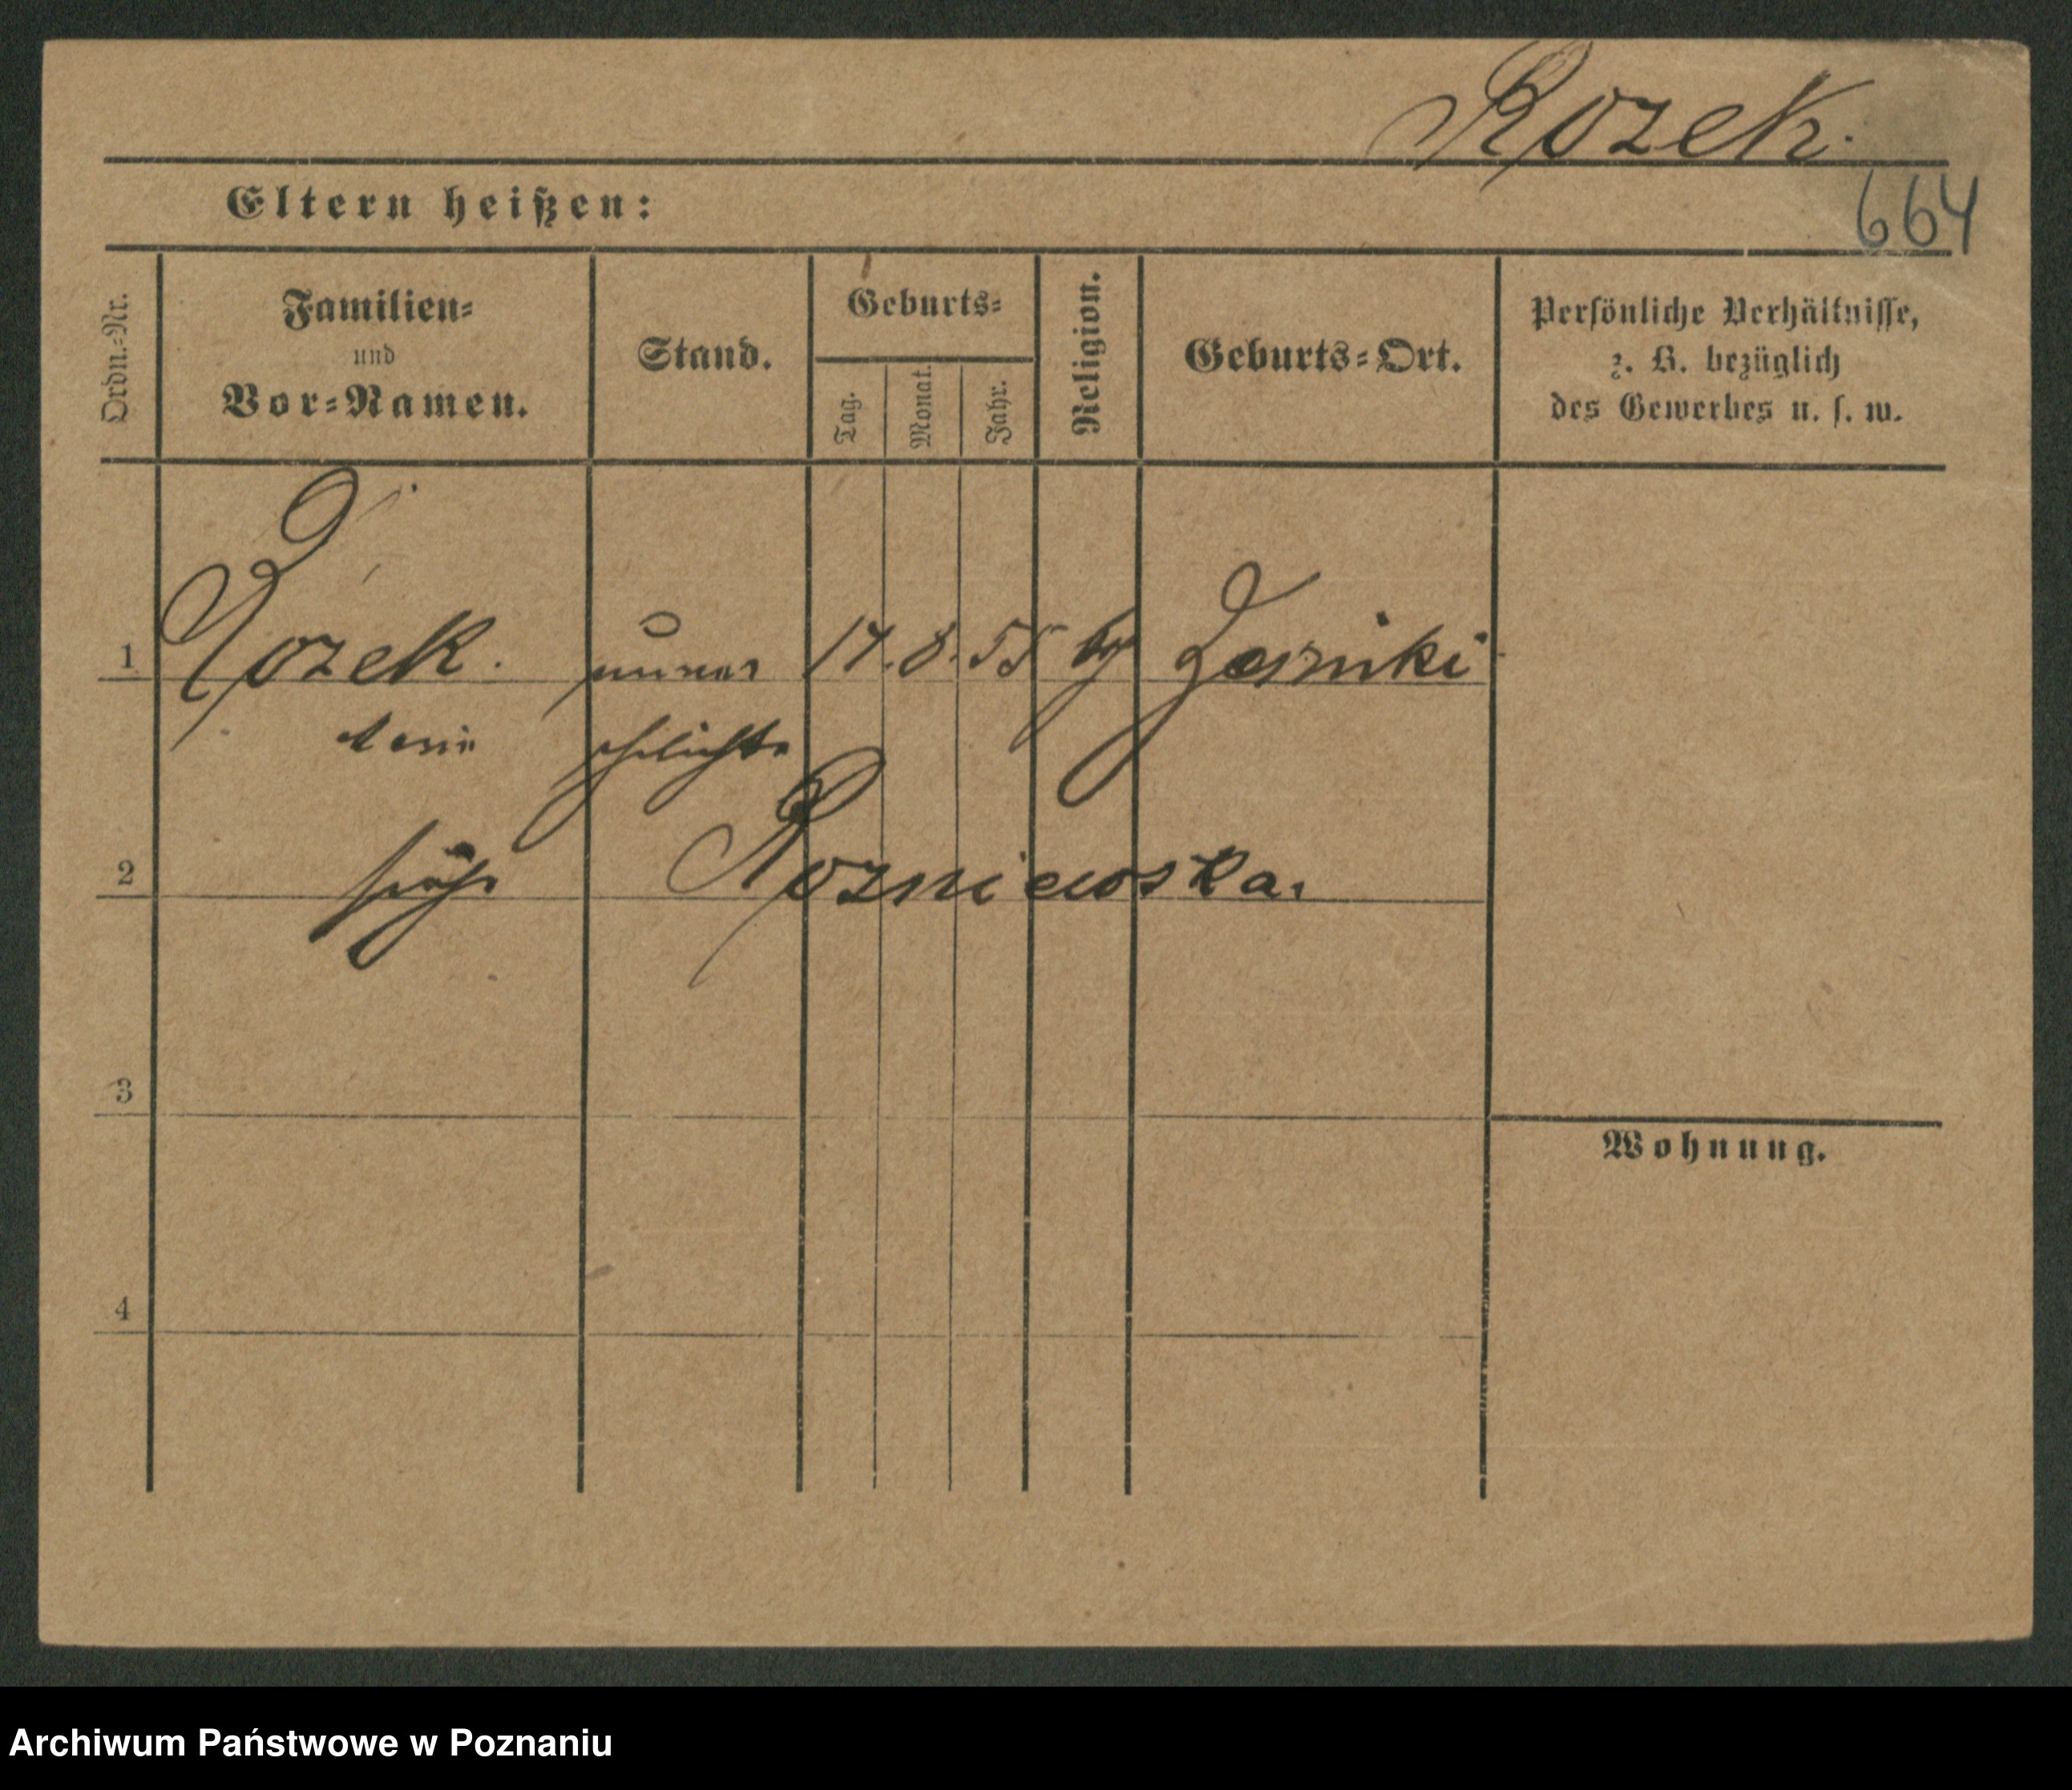 Rozek.
664
Eltern heißen:
Ordn.-Nr.
Familien-
und
Vor-Namen.
Stand.
Geburts-
Tag.
Monat.
Jahr.
Religion.
Geburts-Ort.
Persönliche Verhältnisse,
z. B. bezüglich
des Gewerbes u. s. w.
1 Rozek. 14. 8. 55
2 Rozniewska.
3
Wohnung.
4
Archiwum Państwowe w Poznaniu